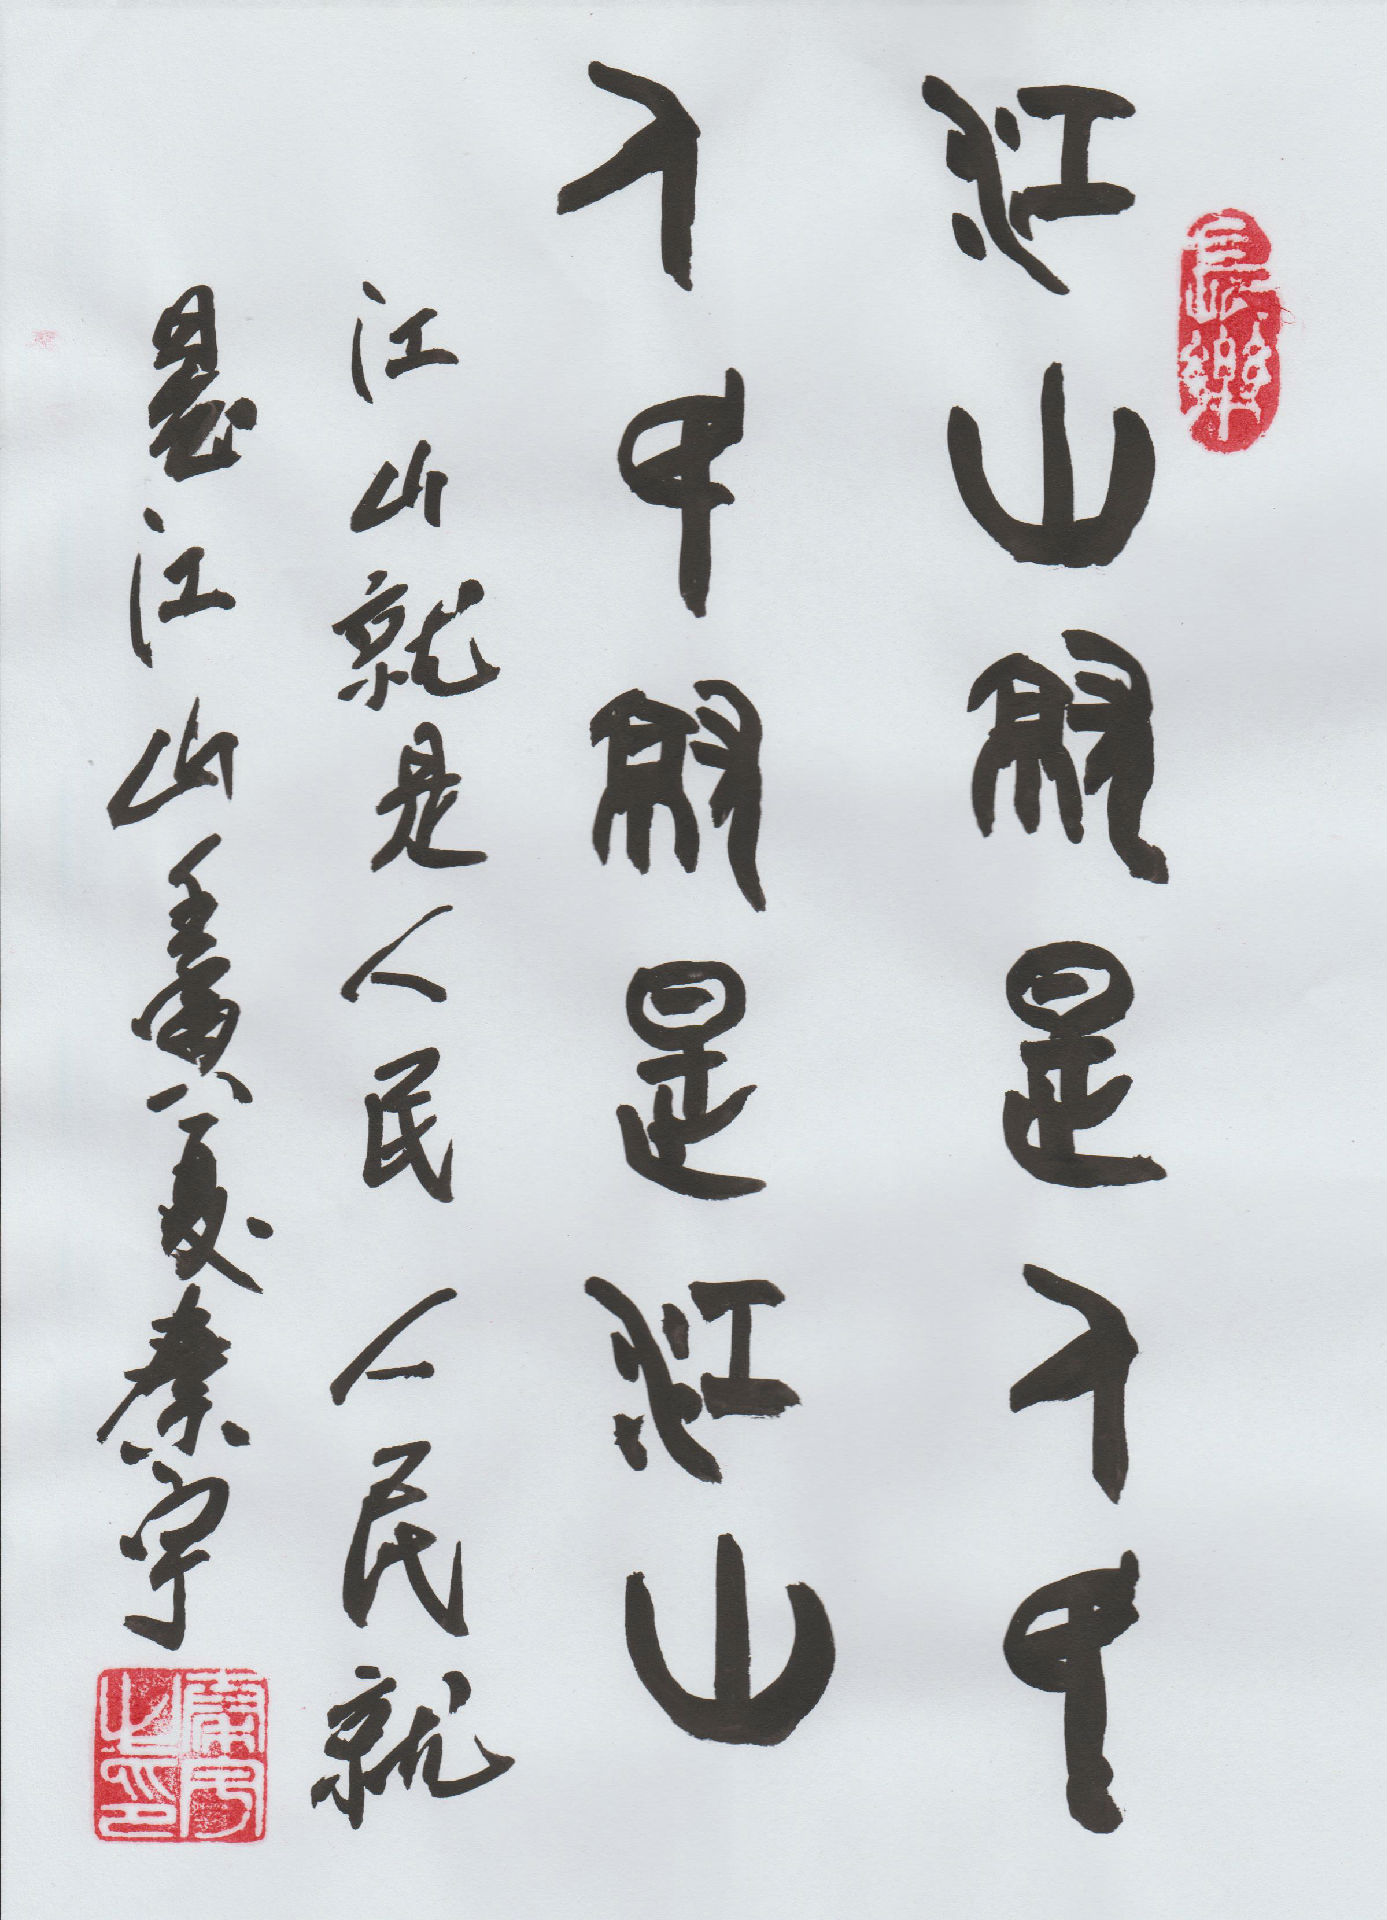 長樂
江山就是人民
人民就是江山
江山就是人民 人民就
是江山 壬寅夏秦宇
之印